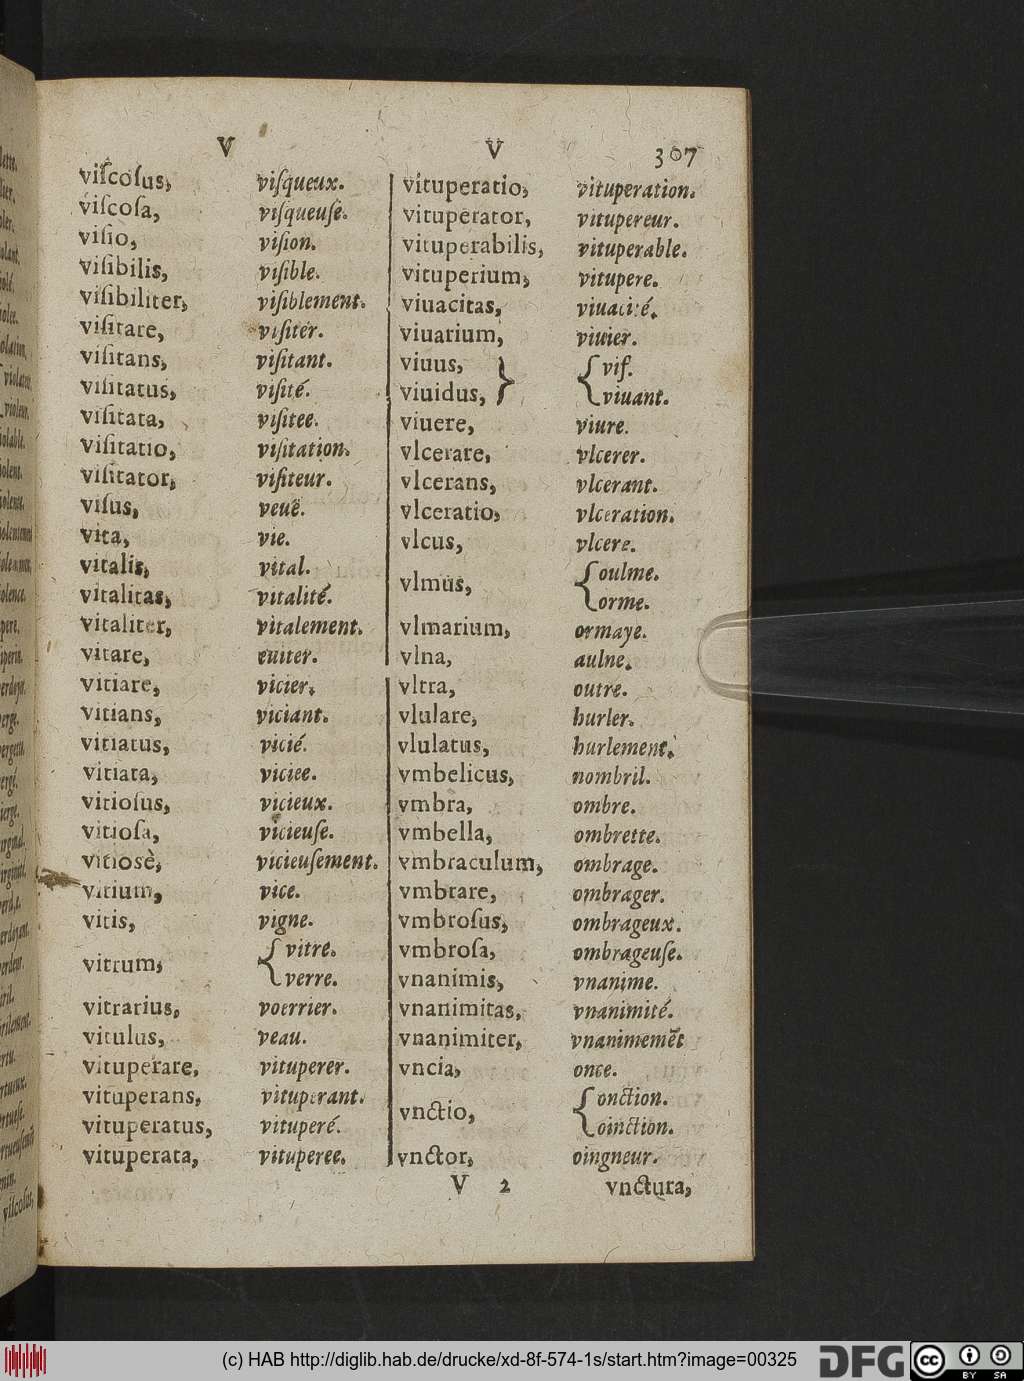 V V 307
viſcoſus, viſqueux.
viſcoſa, viſqueuſe.
viſio, viſion.
viſibilis, viſible.
viſibiliter, viſiblement.
viſitare, viſiter.
viſitans, viſitant.
viſitatus, viſité.
viſitata, viſitee.
viſitatio, viſitation.
viſitator, viſiteur.
viſus, veuë.
vita, vie.
vitalis, vital.
vitalitas, vitalité.
vitaliter, vitalement.
vitare, euiter.
vitiare, vicier.
vitians, viciant.
vitiatus, vicié.
vitiata, viciee.
vitioſus, vicieux.
vitioſa, vicieuſe.
vitiosè, vicieuſement.
vitium, vice.
vitis, vigne.
vitrum, { vitre.
verre.
vitrarius, voerrier.
vitulus, veau.
vituperare, vituperer.
vituperans, vituperant.
vituperatus, vituperé.
vituperata, vituperee.
vituperatio, vituperation.
vituperator, vitupereur.
vituperabilis, vituperable.
vituperium, vitupere.
viuacitas, viuacité.
viuarium, viuier.
viuus, } { vif.
viuidus, viuant.
viuere, viure.
vlcerare, vlcerer.
vlcerans, vlcerant.
vlceratio, vlceration.
vlcus, vlcere.
vlmus, { oulme.
orme.
vlmarium, ormaye.
vlna, aulne.
vltra, outre.
vlulare, hurler.
vlulatus, hurlement.
vmbelicus, nombril.
vmbra, ombre.
vmbella, ombrette.
vmbraculum, ombrage.
vmbrare, ombrager.
vmbroſus, ombrageux.
vmbroſa, ombrageuſe.
vnanimis, vnanime.
vnanimitas, vnanimité.
vnanimiter, vnanimemẽt
vncia, once.
vnctio, { onction.
oinction.
vnctor, oingneur.
V 2 vnctura,
(c) HAB http://diglib.hab.de/drucke/xd-8f-574-1s/start.htm?image=00325
DFG
cc BY SA